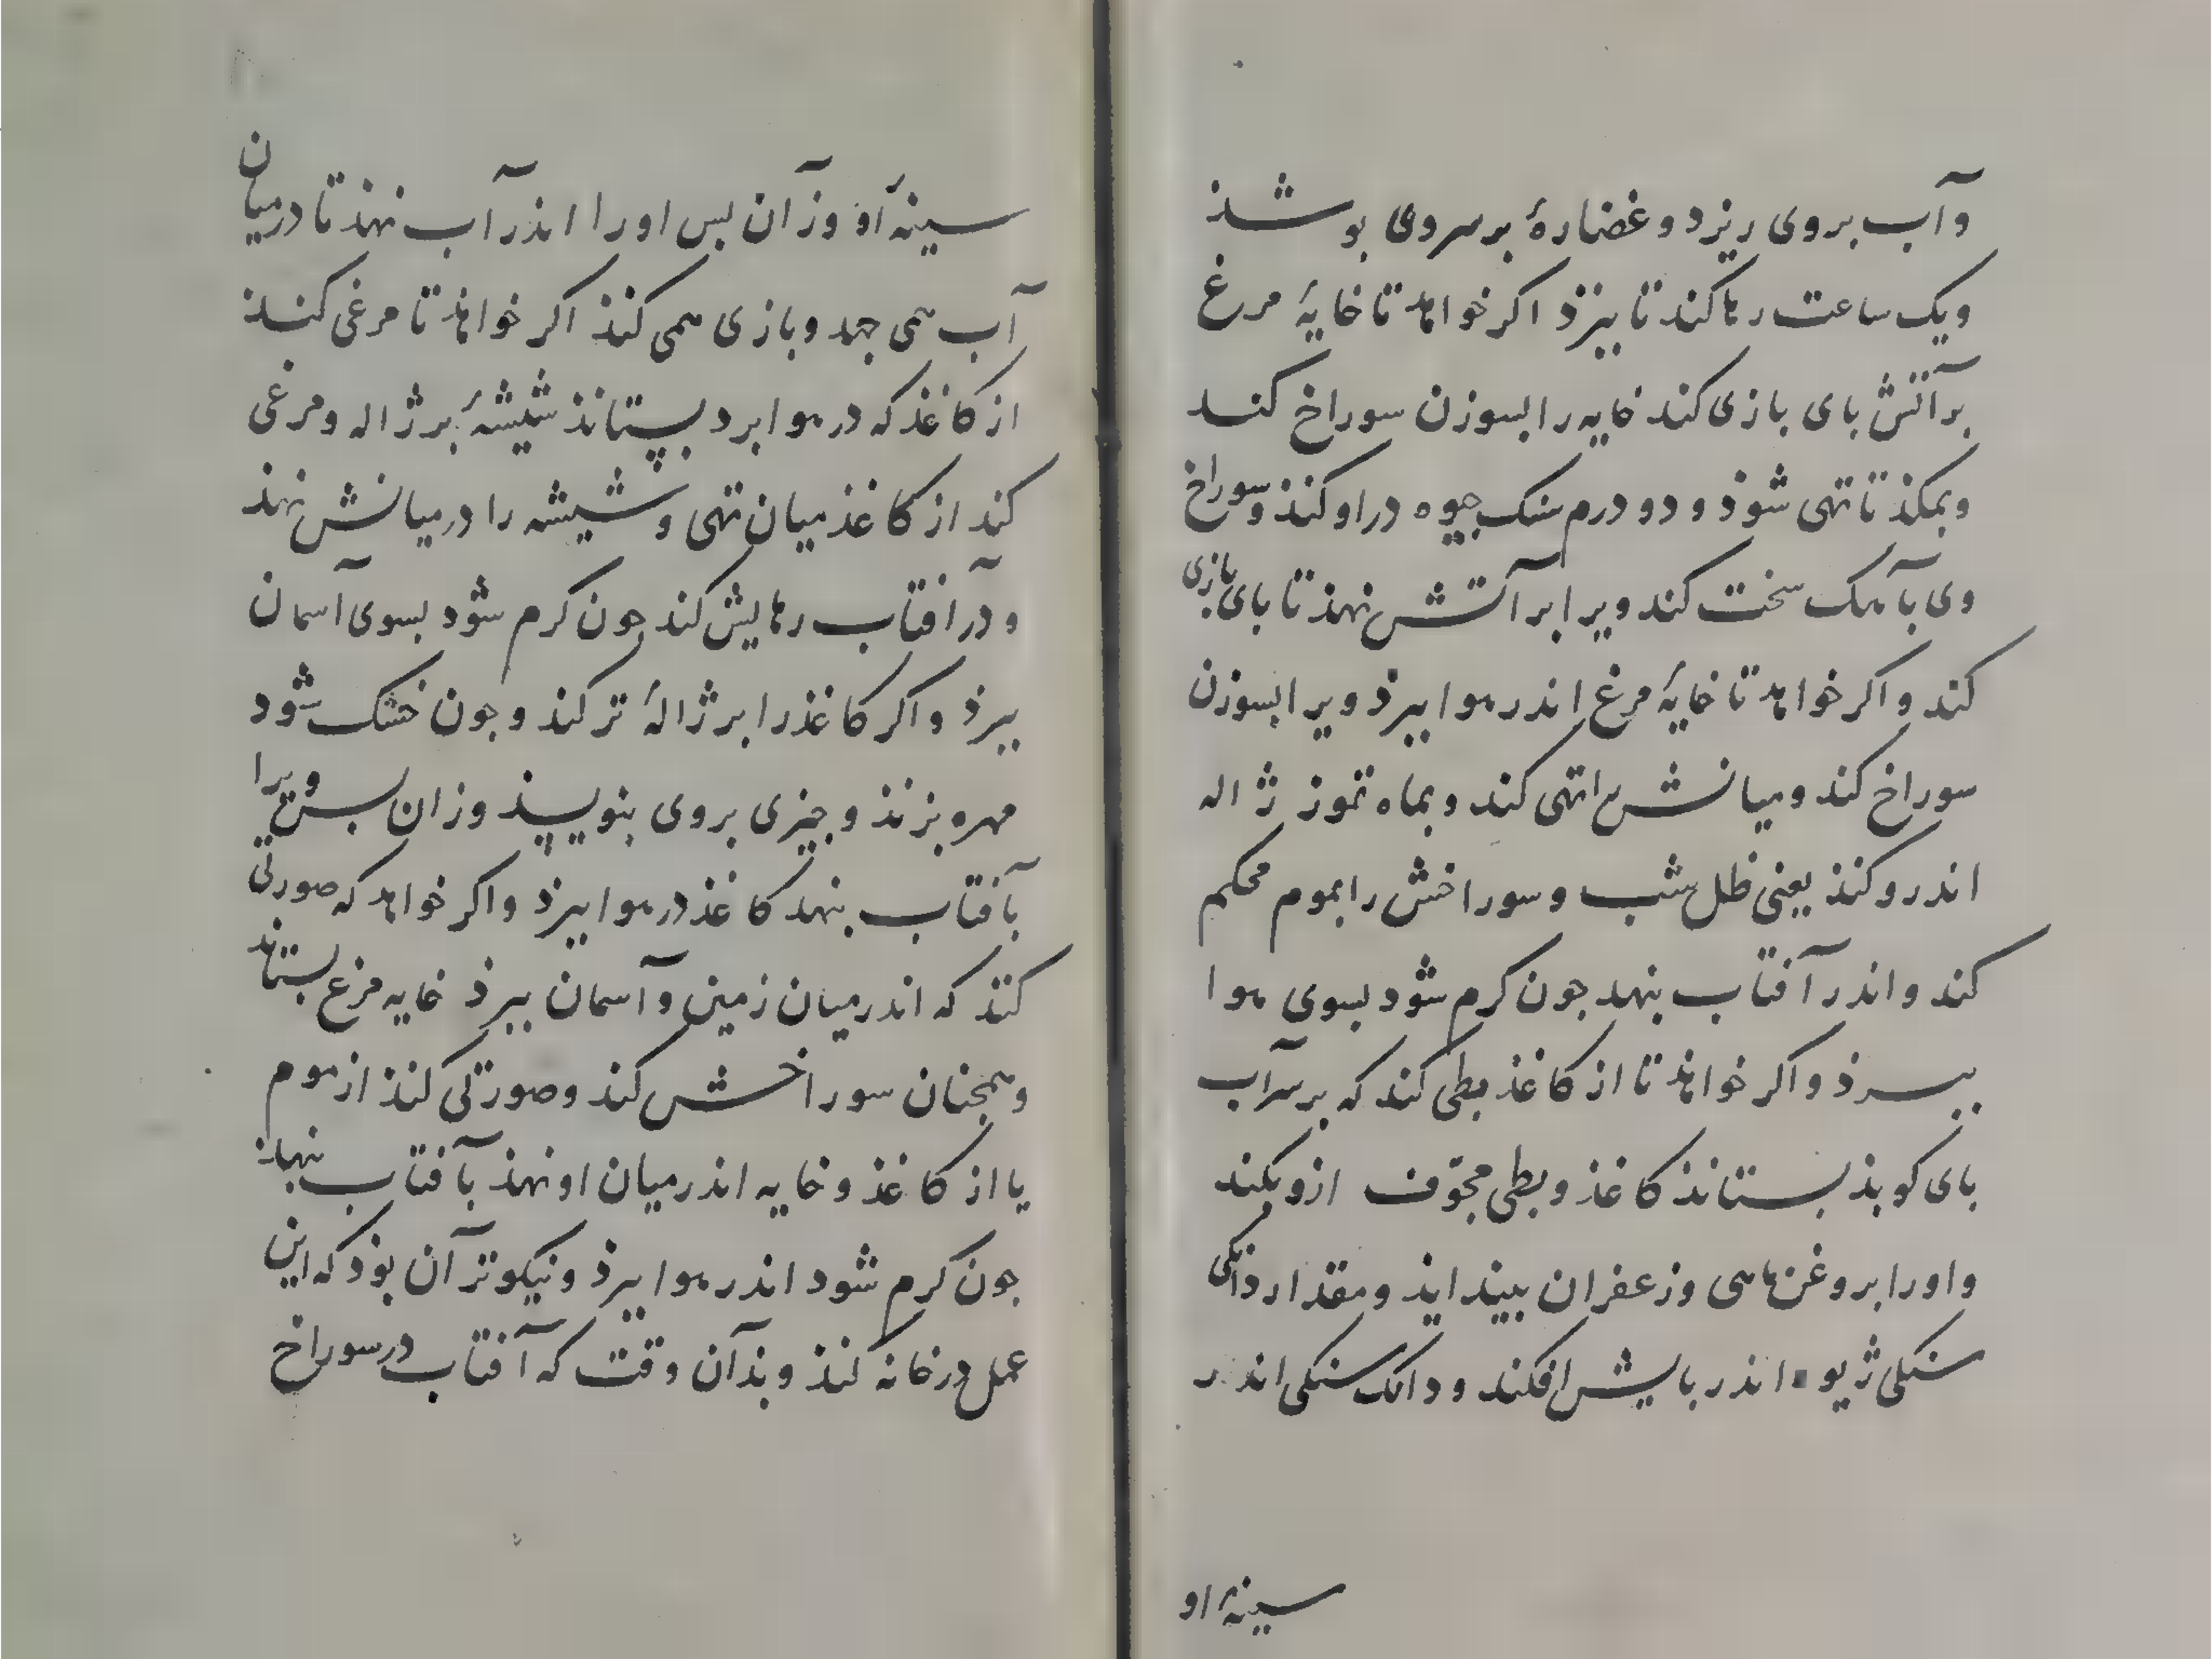 وآب بروی ریزد و غضارهٔ بر سروی بوشد
ویک ساعت رها کند تا ببزذ اکر خواهذ تا خایهٔ مرغ
بر آتش بای بازی کند خایه را بسوزن سوراخ کند
وبمکذ تا تهی شوذ و دو درم سنک جیوه در اوکند وسوراخ
وی بآهک سخت کند ویرا بر آتش نهذ تا بای بازی
کند و اکر خواهد تا خایهٔ مرغ اندر هوا ببرذ ویرا بسوزن
سوراخ کند و میانش را تهی کند و بماه تموز ژاله
اندروکنذ یعنی ظل شب و سوراخش را بموم محکم
کند واندر آفتاب بنهد جون کرم شود بسوی هوا
ببرذ و اکر خواهذ تا از کاغذ بطی کند که بر سر آب
بای کوبذ بستانذ کاغذ و بطی مجوّف ازو بکند
و اورا بروغن ماهی و زعفران بینداید و مقدار دانکی
سنکی ژیوه اندر بایش افکند و دانک سنکی اندر
سینهٔ او
سینهٔ او وزآن بس اورا اندر آب نهذ تا در میان
آب همی جهد وبازی همی کنذ اکر خواهذ تا مرغی کند
از کاغذ که در هوا برد بستاند شیشهٔ بر ژاله و مرغی
کند از کاغذ میان تهی و شیشه را در میانش نهذ
و در آفتاب رهایش کند جون کرم شود بسوی آسمان
ببرذ و اکر کاغذ را بر ژالهٔ تر کند و جون خشک شود
مهره بزنذ و جیزی بروی بنویسذ وزان بس ویرا
بآفتاب بنهد کاغذ در هوا ببرذ واکر خواهد که صورتی
کنذ که اندر میان زمین و آسمان ببرذ خایه مرغ بستاند
وهمجنان سوراخش کند وصورتی کنذ از موم
یا از کاغذ و خایه اندر میان او نهذ بآفتاب بنهاذ
جون کرم شود اندر هوا ببرذ ونیکوتر آن بوذ که این
عمل در خانه کنذ و بذآن وقت که آفتاب در سوراخ